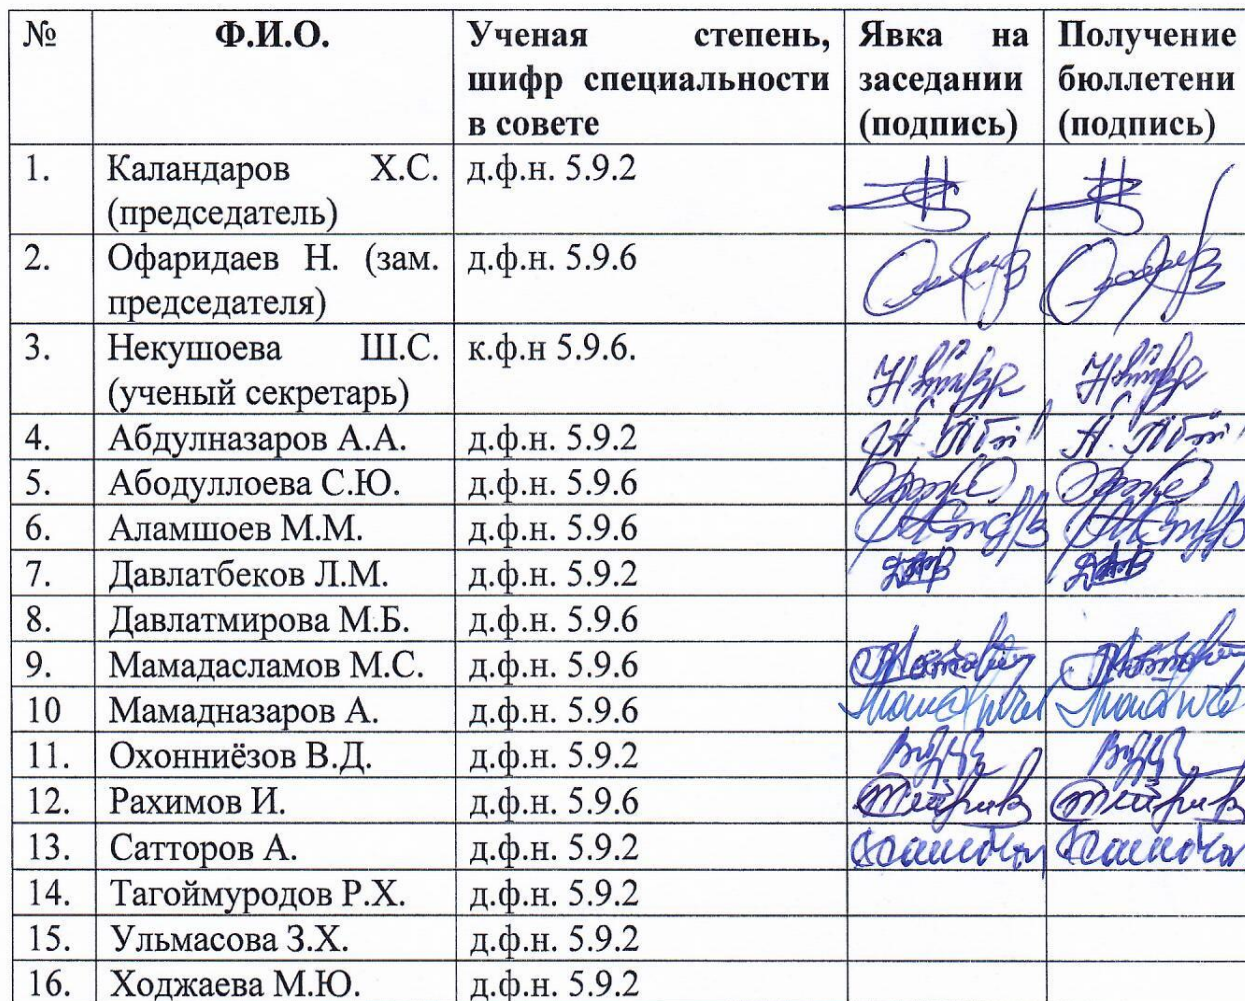 № Ф.И.О. Ученая степень, шифр специальности в совете Явка на заседании (подпись) Получение бюллетени (подпись)
1. Каландаров Х.С. д.ф.н. 5.9.2
(председатель)
2. Офаридаев Н. (зам. д.ф.н. 5.9.6
председателя)
3. Некушоева Ш.С. к.ф.н 5.9.6.
(ученый секретарь)
4. Абдулназаров А.А. д.ф.н. 5.9.2
5. Абодуллоева С.Ю. д.ф.н. 5.9.6
6. Аламшоев М.М. д.ф.н. 5.9.6
7. Давлатбеков Л.М. д.ф.н. 5.9.2
8. Давлатмирова М.Б. д.ф.н. 5.9.6
9. Мамадасламов М.С. д.ф.н. 5.9.6
10 Мамадназаров А. д.ф.н. 5.9.6
11. Охонниёзов В.Д. д.ф.н. 5.9.2
12. Рахимов И. д.ф.н. 5.9.6
13. Сатторов А. д.ф.н. 5.9.2
14. Тагоймуродов Р.Х. д.ф.н. 5.9.2
15. Ульмасова З.Х. д.ф.н. 5.9.2
16. Ходжаева М.Ю. д.ф.н. 5.9.2